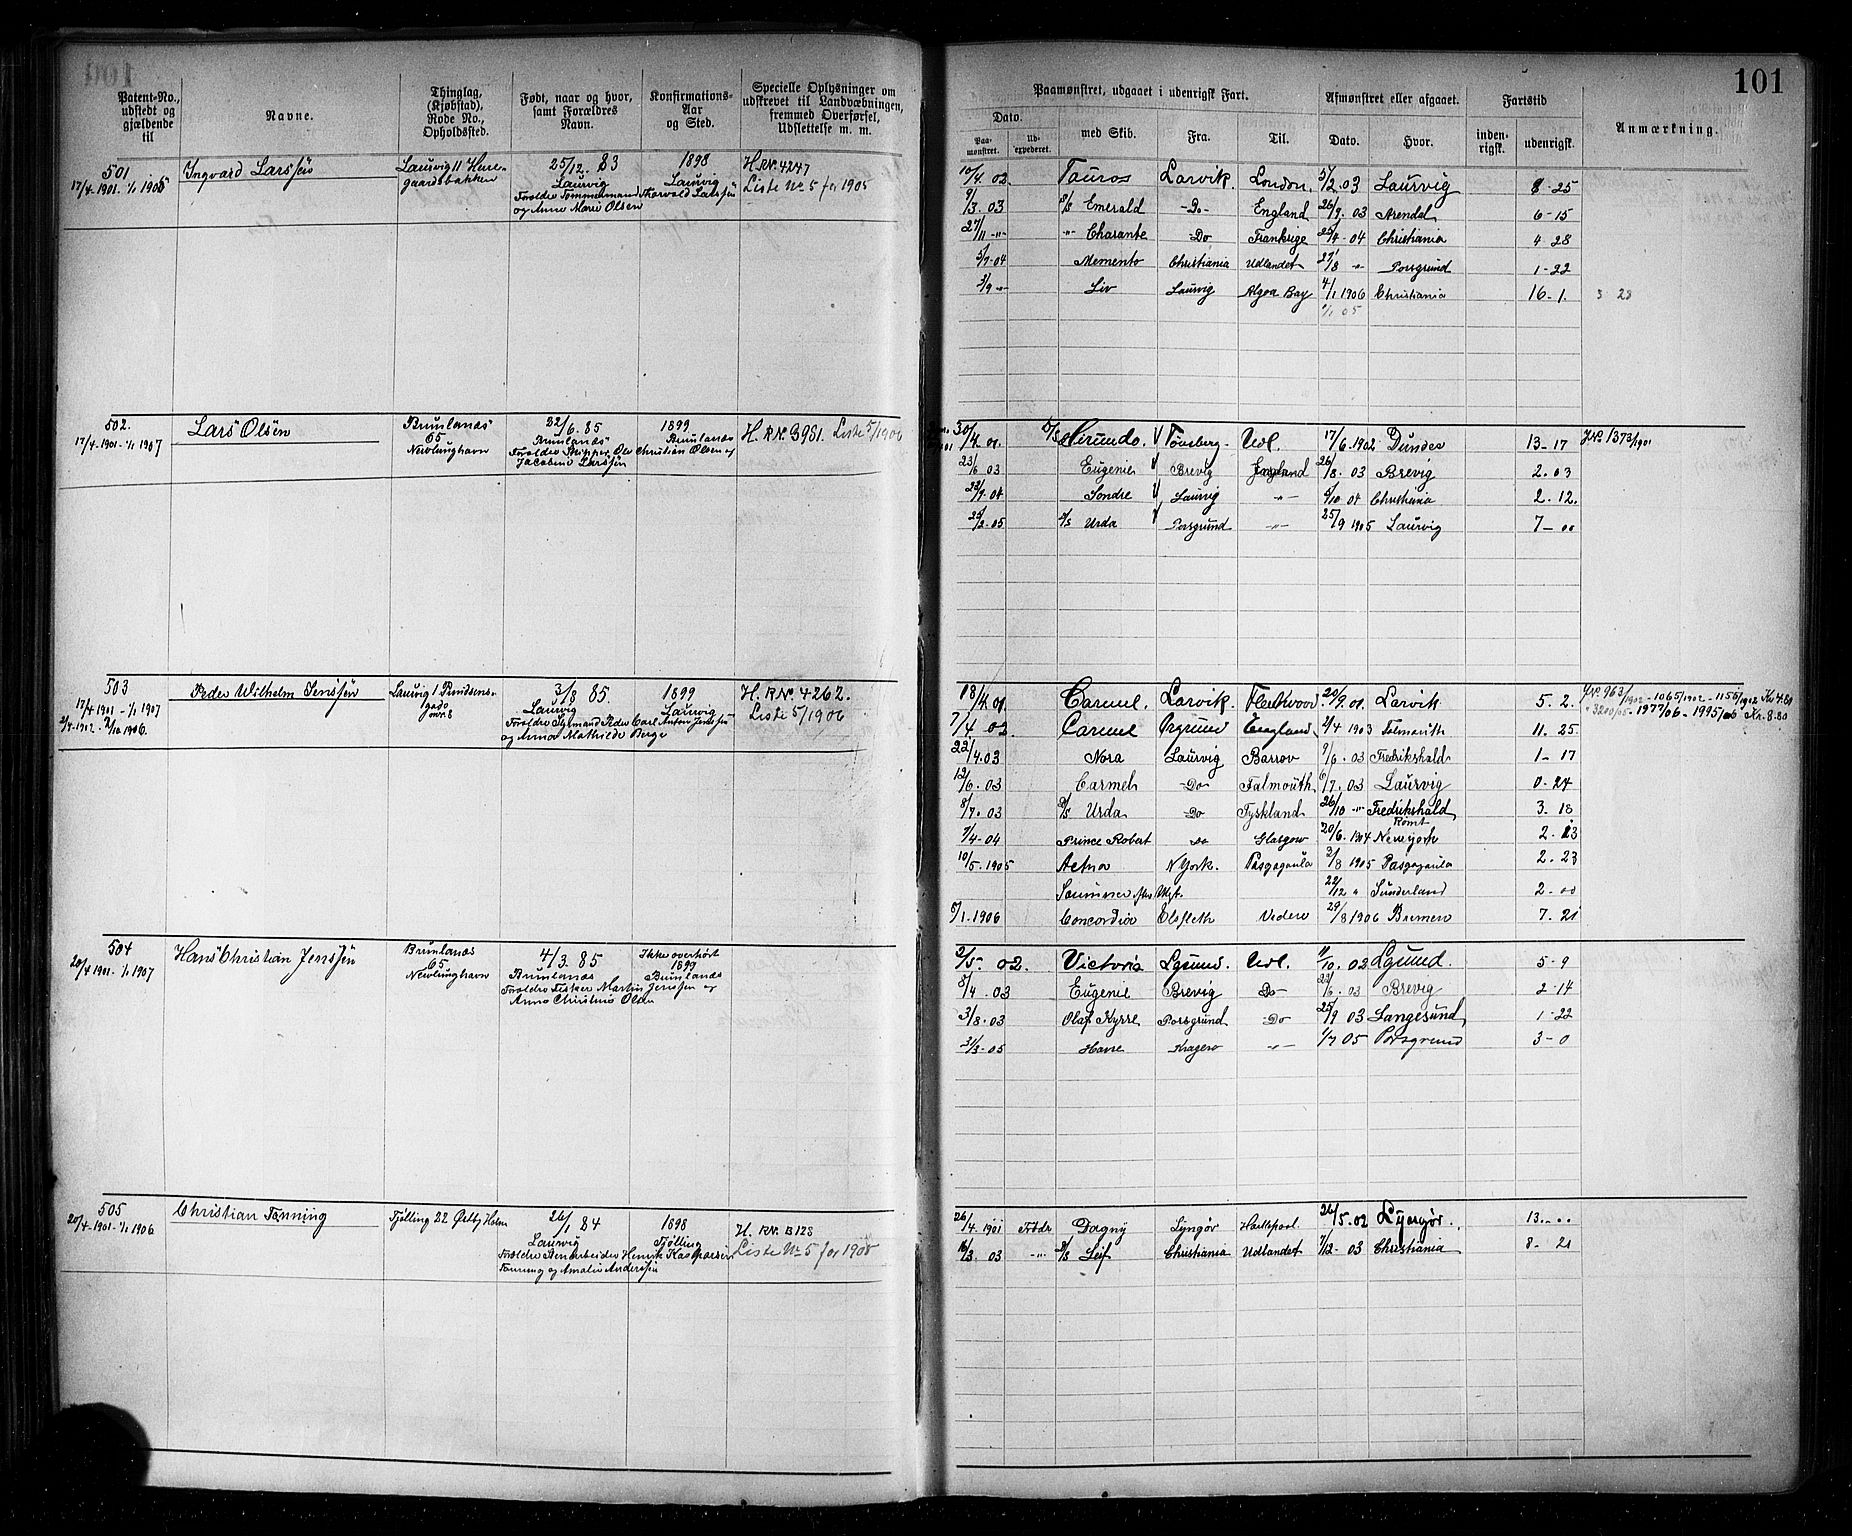 101
Patent-No., udstedt og gjældende til
Navne.
Thinglag, (Kjøbstad), Rode No., Opholdssted.
Født, naar og hvor, samt Forældres Navn.
Konfirmations- Aar og Sted.
Specielle Oplysninger om udskrevet til Landværbningen, fremmed Overførsel, Udslettelse m. m.
Paamønstret, udgaaet i udenrigsk Fart.
Afmønstret eller afgaaet.
Fartstid
Anmærkning.
Dato.
Paa- mønstret.
Ud- expederet.
med Skib.
Fra.
Til.
Dato.
Hvor.
inden- rigsk.
udenrigsk.
501
17/4-1901. 1/1 1906
Ingvard Larssen
Laurvig 11 Herre-
gaardsbakken
25/12. 83
Laurvig
Forældre Tømmermand Thorvald Larssen
og Anne Marie Olsen
1898
Laurvig
H. RNº 4247
Liste Nº 5 for 1905
10/4. 02. Tauros Larvik. London, 5/2. 03 Laurvig 8-25
9/3. 03 S/S Emerald -Do- England 26/9. 03 Arendal 6-15
27/11 -"- -"- Charante -Do Frankrige 25/4-04 Christiania 4 28
5/7-04 Memento Christiania Udlandet 27/8 " Porsgrund 1-22
3/9 -"- Liv Laurvig Algoa Bay 4/1 1906 Christiania 16-1. 3 23
1/1 05
502.
17/4-1901-1/1 1907
Lars Olsen
Brunlanæs
65
Nevlunghavn
22/6. 85
Brunlanæs
Forældre Skipper Ole Christian Olsen og
Jacobine Larssen
1899
Brunlanæs
H. RNº 3981. Liste 5/1906
30/4. 01. D/S Hirundo. Tønsberg. Udl. 17/6. 1902 Dundee 13-17 JNº 1373/1901
23/6 03 Eugenie Brevig England 26/8. 03 Brevig 2.03
22/7-04 Sondre Laurvig -"- 6/10 04 Christiania 2-12.
25/2-05 S/S Urda Porsgrund -"- 25/9 1905 Laurvig 7-00
503
17/4 1901 - 1/1 1907
Peder Wilhelm Jenssen
Laurvig 1
gade
3/8 85.
Laurvig
Forældre Sjømand Peder Carl Anton Jenssen
og Anna Mathilde Berge
1899
Laurvig
H. RNº 4262.
Liste 5/1906
18/4. 01. Carmel. Larvik. Fleetwood. 20/9. 01. Larvik 5. 2. JNº 963/1902 - 1065/1902 - 1156/1902 Kr 4.80
3200/05 - 1977/06 - 1995/06 Kr. 8.80
7/4 02. Carmel England, 2/4 1903 Falmouth 11. 25.
22/4.03 Nora Laurvig Barrow 9/6. 03 Fredrikshald 1-17
12/6. 03 Carmel -Do- Falmouth, 6/7. 03 Laurvig 0-24
8/7. 03 S/S Urda -Do Tyskland 26/10 -"- Fredrikshald, 3. 18
7/4-04 Prince Robert Do Glasgow 20/6. 1904 Rømt Newyork 2-13
10/5. 1905 Aetna N York. Pasgagoula 3/8 1905 Pasgagoula 2-23
22/12 " Sunderland 2-00
5/1. 1906 Concordia Elsfleth Videre 29/8 1906 Bremen 7. 21
504
20/4 1901-1/1 1907
Hans Christian Jenssen
Brunlanæs
65
Nevlunghavn
4/3. 85
Brunlanæs
Forældre Fisker Martin Jenssen og
Anne Christine Olsen
Ikke overhørt
1899
Brunlanæs
2/5. 02. Victoria Lgsund. Udl. 11/10. 02 Lgsund. 5-9
8/4. 03 Eugenie Brevig Do 22/6. 03 Brevig 2-14
3/8. 03 Olaf Kyrre Porsgrund Do 25/9 03 Langesund, 1-22
31/3-05 Havre Kragerø -"- 1/7 05 Porsgrund 3-0
505
20/4-1901-1/1 1906
Christian Tanning
Tjølling 22 Østby Holm
26/1 84
Laurvig
Forældre Stenarbeider Henrik Kaspersen
Tanning og Amalie Anderssen
1898
Tjølling
H. RNº. B123
Liste Nº 5 for 1905
26/4. 1901 Dagny Lyngør Hartlepool. 26/5. 02 Lyngør. 13-00
16/3. 03 -"- S/S Leif Christiania Udlandet 7/12-03 Christiania 8-21